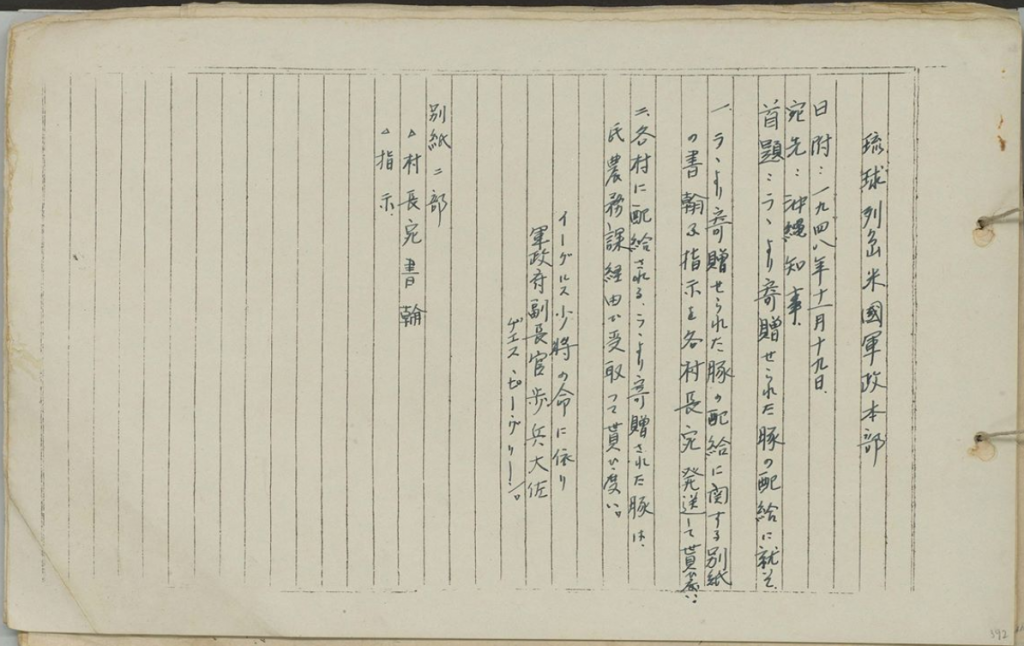 琉球列島米國軍政本部
日附:一九四八年十一月十九日.
宛先:沖縄知事.
首題:ララより寄贈せられた豚の配給に就て
一、ララより寄贈せられた豚の配給に関する別紙
の書翰及指示を各村長宛発送して貰度い.
二、各村に配給される.ララより寄贈された豚は.
民農務課経由か受取って貰ひ度い。
イーグルス少將の命に依り
軍政府副長官歩兵大佐
別紙二部
△村長宛書翰
△指示.
392